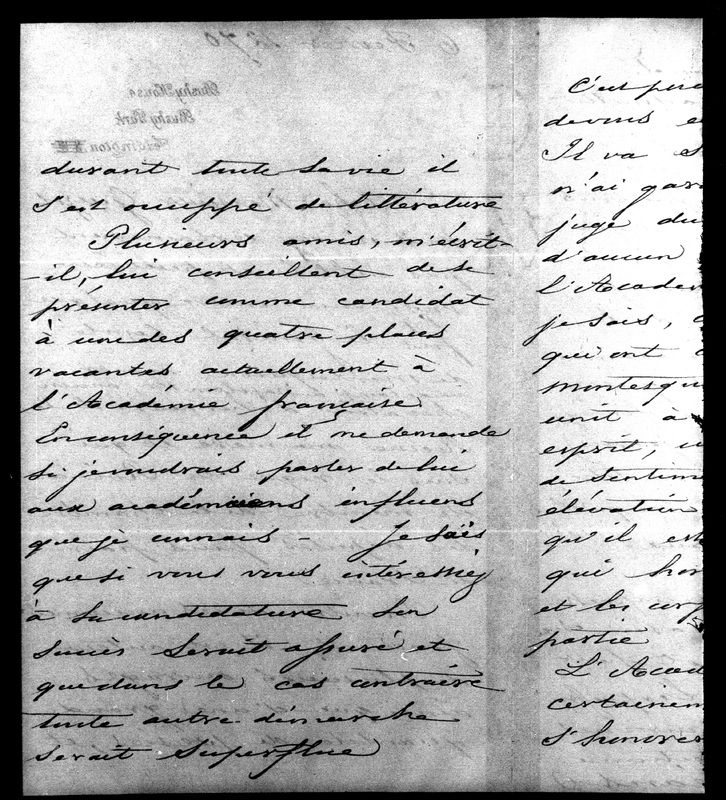 durant toute sa vie il
s'est occuppé de littérature
Plusieurs amis, m'écrit-
-il, lui conseillent de se
présenter comme candidat
à une des quatre places
vacantes actuellement à
l'Académie française
En conséquence il me demande
si je voudrais parler de lui
aux académiciens influens
que je connais - Je sais
que si vous vous intéressiez
à sa candidature son
succès serait assuré et
que dans le cas contraire
toute autre démarche
serait superflue
C'est pou
devens e
Il va s
n'ai gar
juge du
d'aucun
l'Acade
je sais,
qui ont
montesqu
unit à
esprit, u
de sentim
élévation
qu'il es
qui hon
et les corp
partie
L'Acad
certainem
s'honorer
Bushy House
Bushy Park